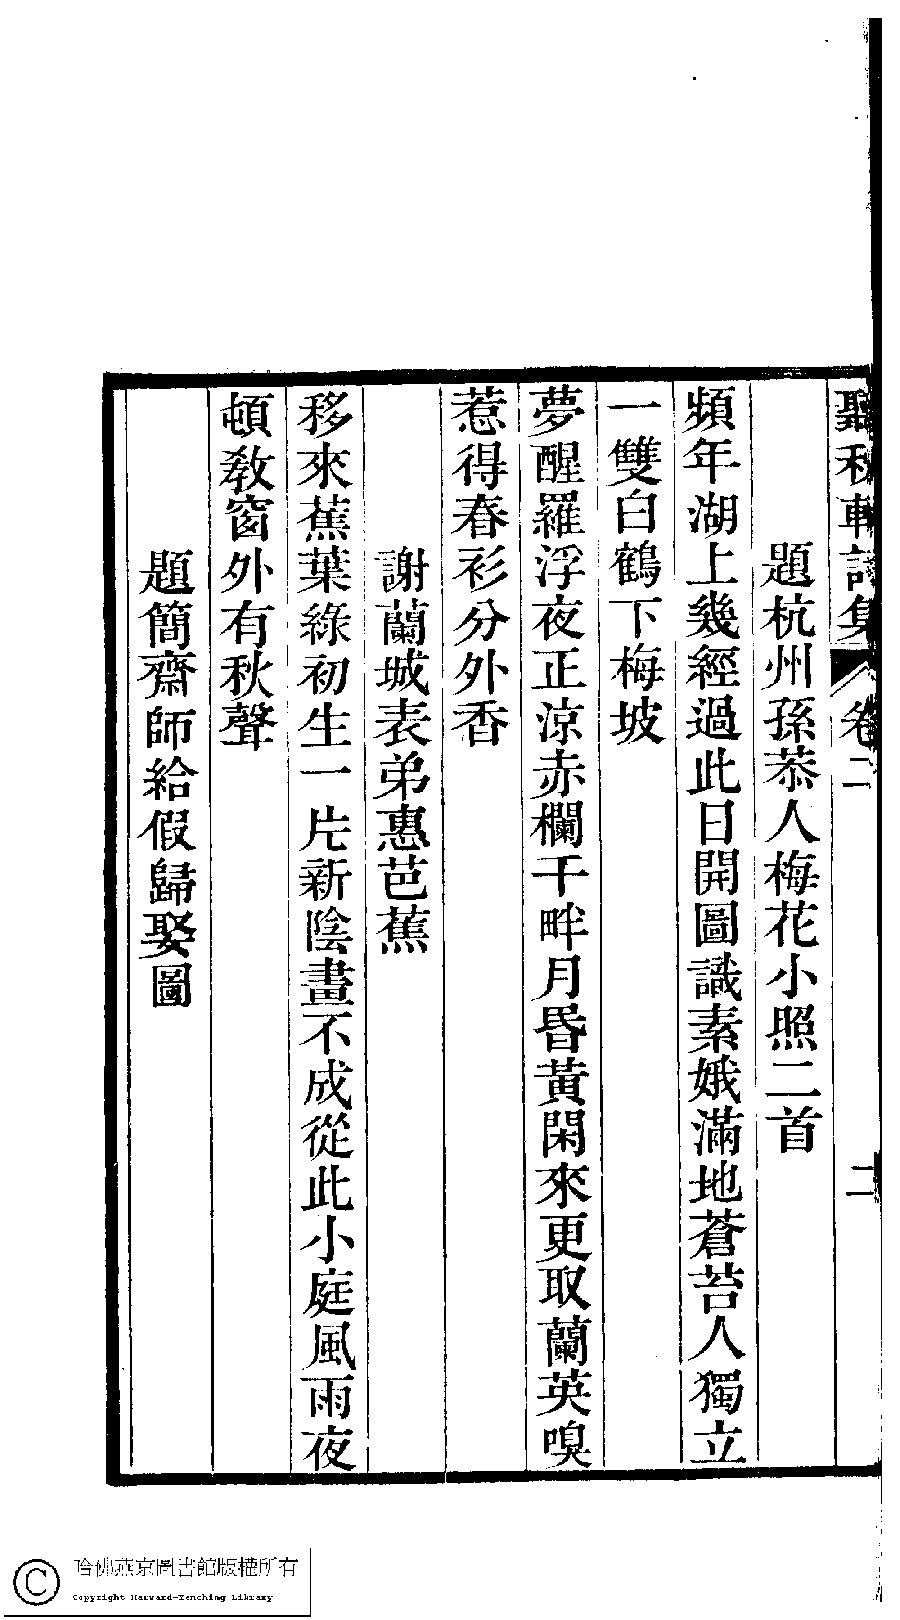 聽秋軒詩集 卷二 二
題杭州孫恭人梅花小照二首
頻年湖上幾經過此日開圖識素娥滿地蒼苔人獨立
一雙白鶴下梅坡
夢醒羅浮夜正涼赤欄干畔月昏黃閑來更取蘭英嗅
惹得春衫分外香
謝蘭城表弟惠芭蕉
移來蕉葉綠初生一片新陰畫不成從此小庭風雨夜
頓教窗外有秋聲
題簡齋師給假歸娶圖
哈佛燕京圖書館版權所有
Copyright Harvard-Yenching Library